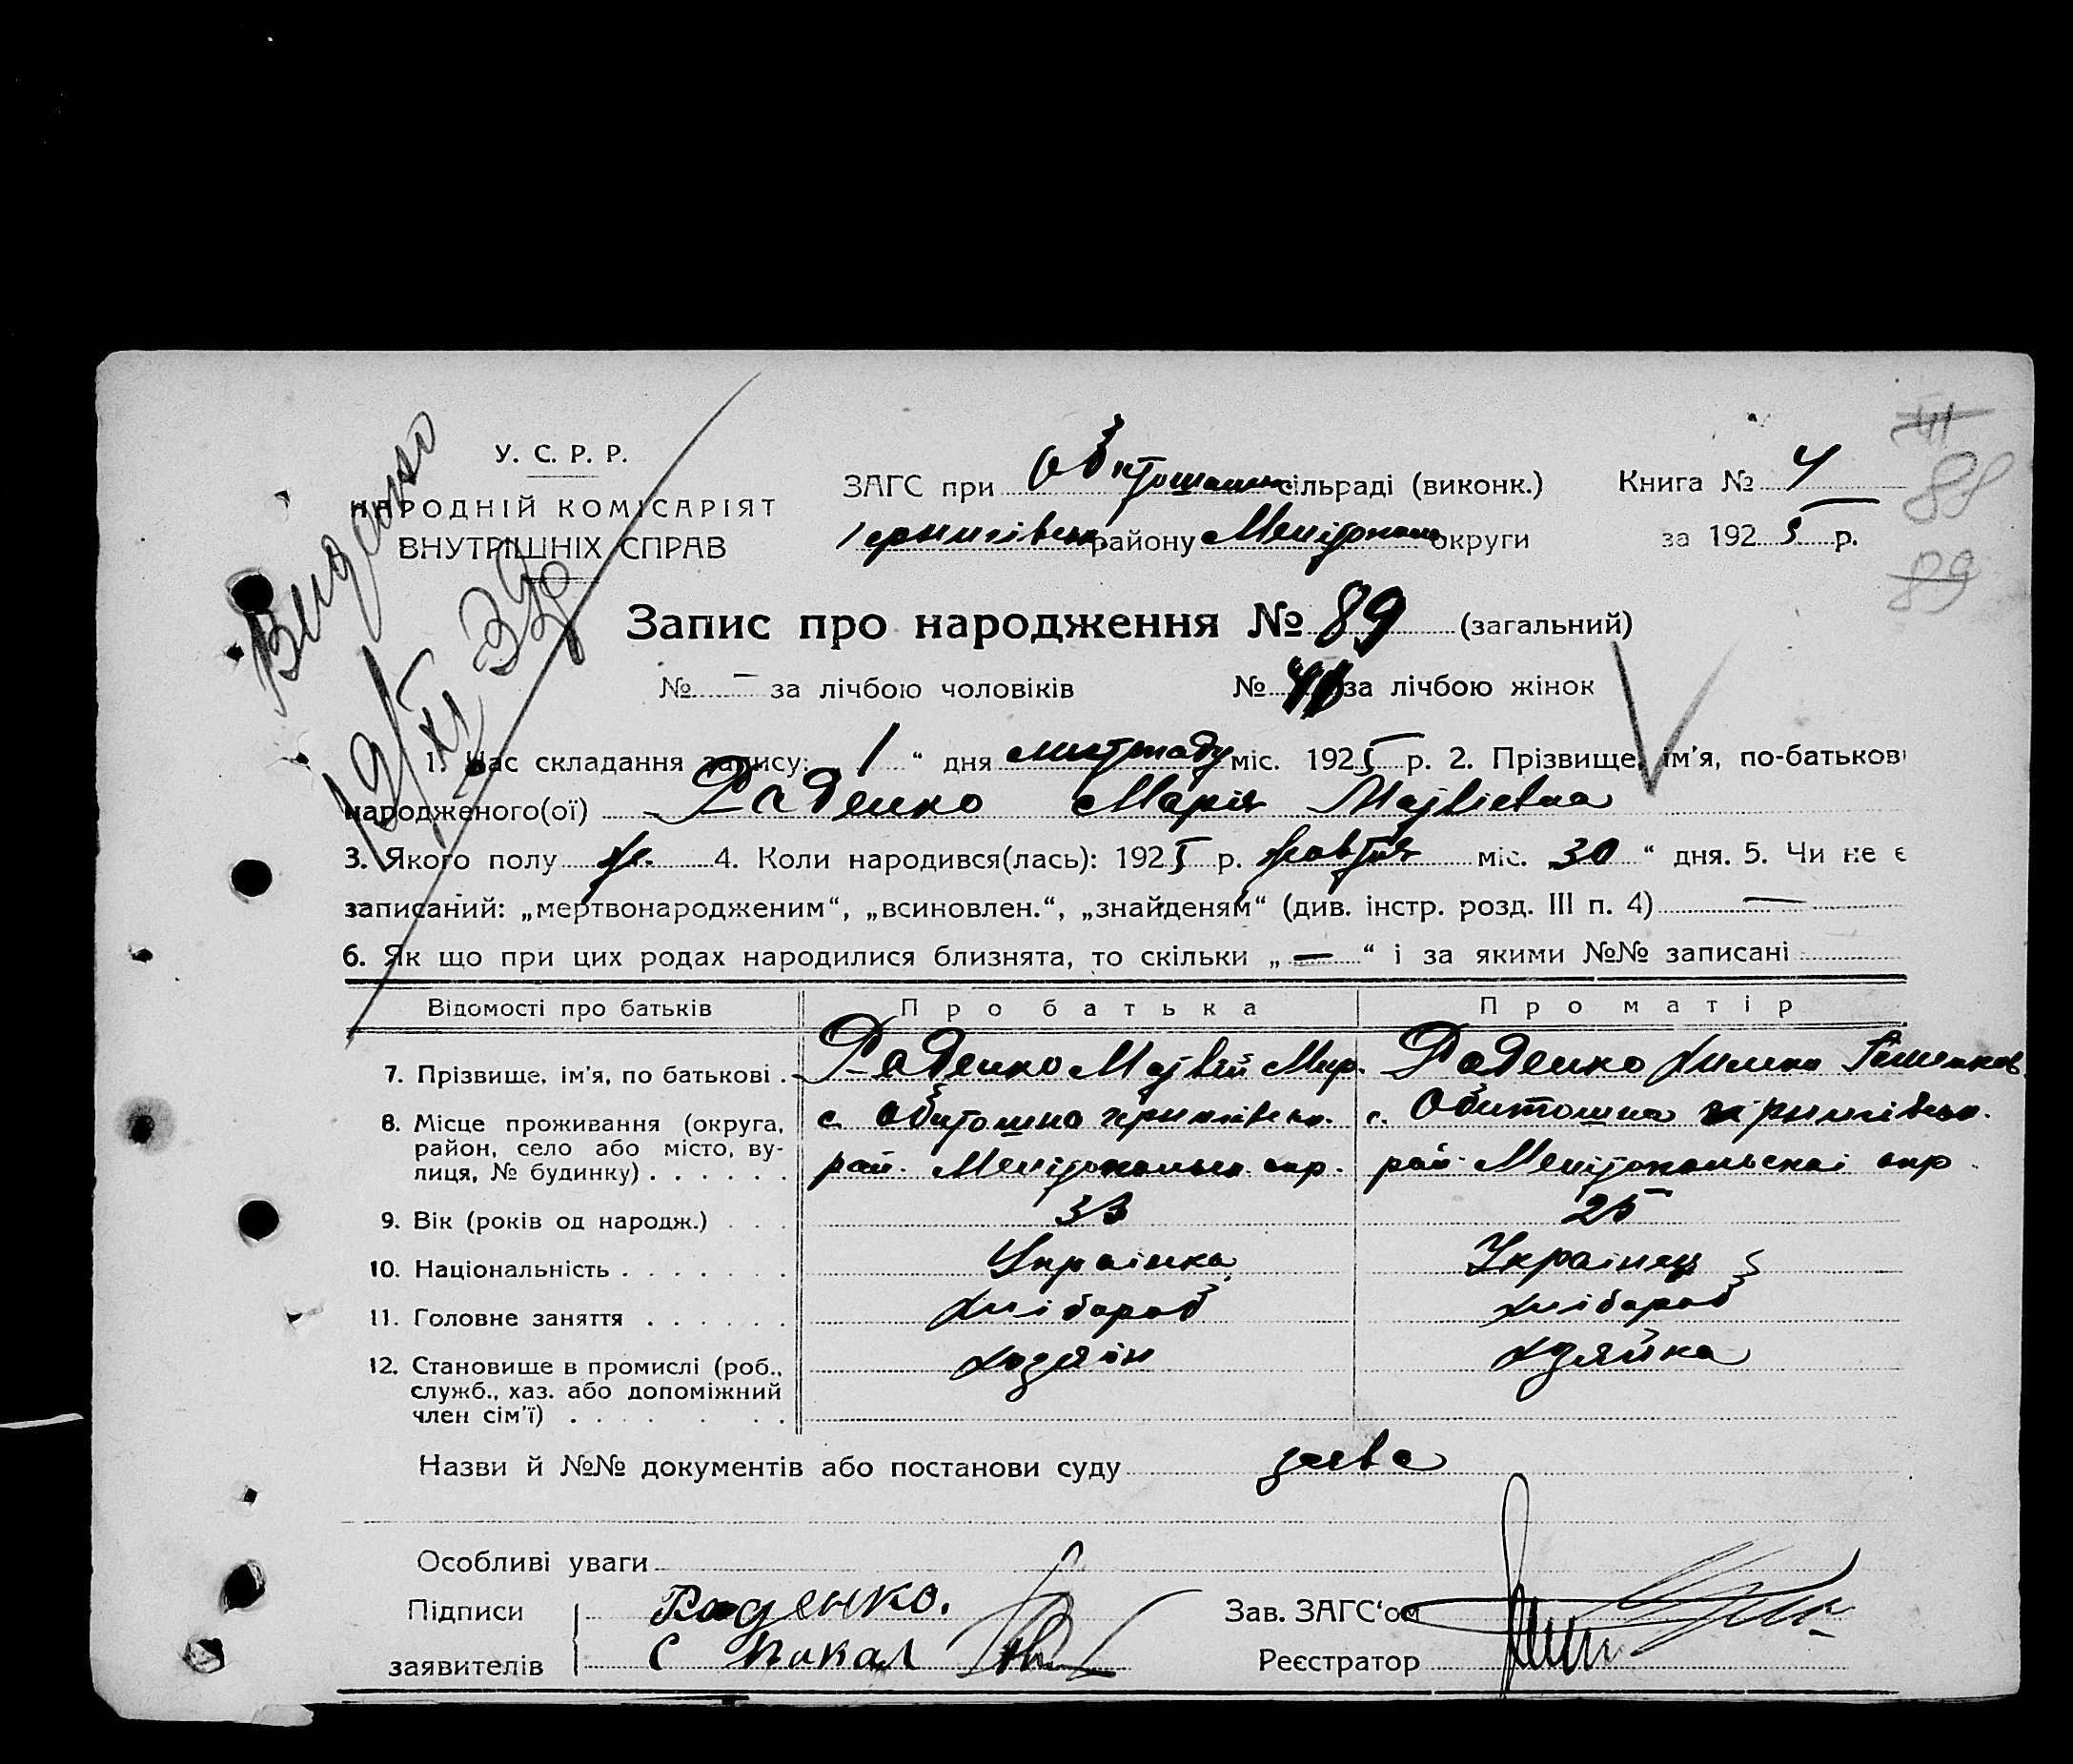 Видано
19/XI 39р
У. С. Р. Р.
НАРОДНІЙ КОМІСАРІЯТ
ВНУТРІШНІХ СПРАВ
ЗАГС при сільраді (виконк.)
району округи
Книга № 4
за 1925 р.
41
88
89
Запис про народження № 89 (загальний)
№ — за лічбою чоловіків № за лічбою жінок
1. Час складання запису: 1 “ дня листопаду міс. 1925 р. 2. Прізвище, ім’я, по-батькові
народженого(ої) Раденко Марія Матвієвна
3. Якого полу ж. 4. Коли народився(лась): 1925 р. жовтня міс. 30 “ дня. 5. Чи не є
записаний: „мертвонародженим“, „всиновлен.“, „знайденям“ (див. інстр. розд. III п. 4) —
6. Як що при цих родах народилися близнята, то скільки „ — “ і за якими №№ записані
Відомості про батьків Про батька Про матір
7. Прізвище, ім’я, по батькові . Раденко Матвій Мир. Раденко
8. Місце проживання (округа, с. Обитошна с. Обитошна
район, село або місто, ву- рай. окр. рай. Мелітопольскоі окр.
лиця, № будинку) . . . . . .
9. Вік (років од народж.) . . . 33 25
10. Національність . . . . . . . Українка Українець
11. Головне заняття . . . . . . хлібороб хлібороб
12. Становище в промислі (роб., хозяін хзяйка
служб., хаз. або допоміжний
член сім’ї) . . . . . .
Назви й №№ документів або постанови суду заява
Особливі уваги
Підписи Раденко. Зав. ЗАГС‘ом
заявителів Реєстратор